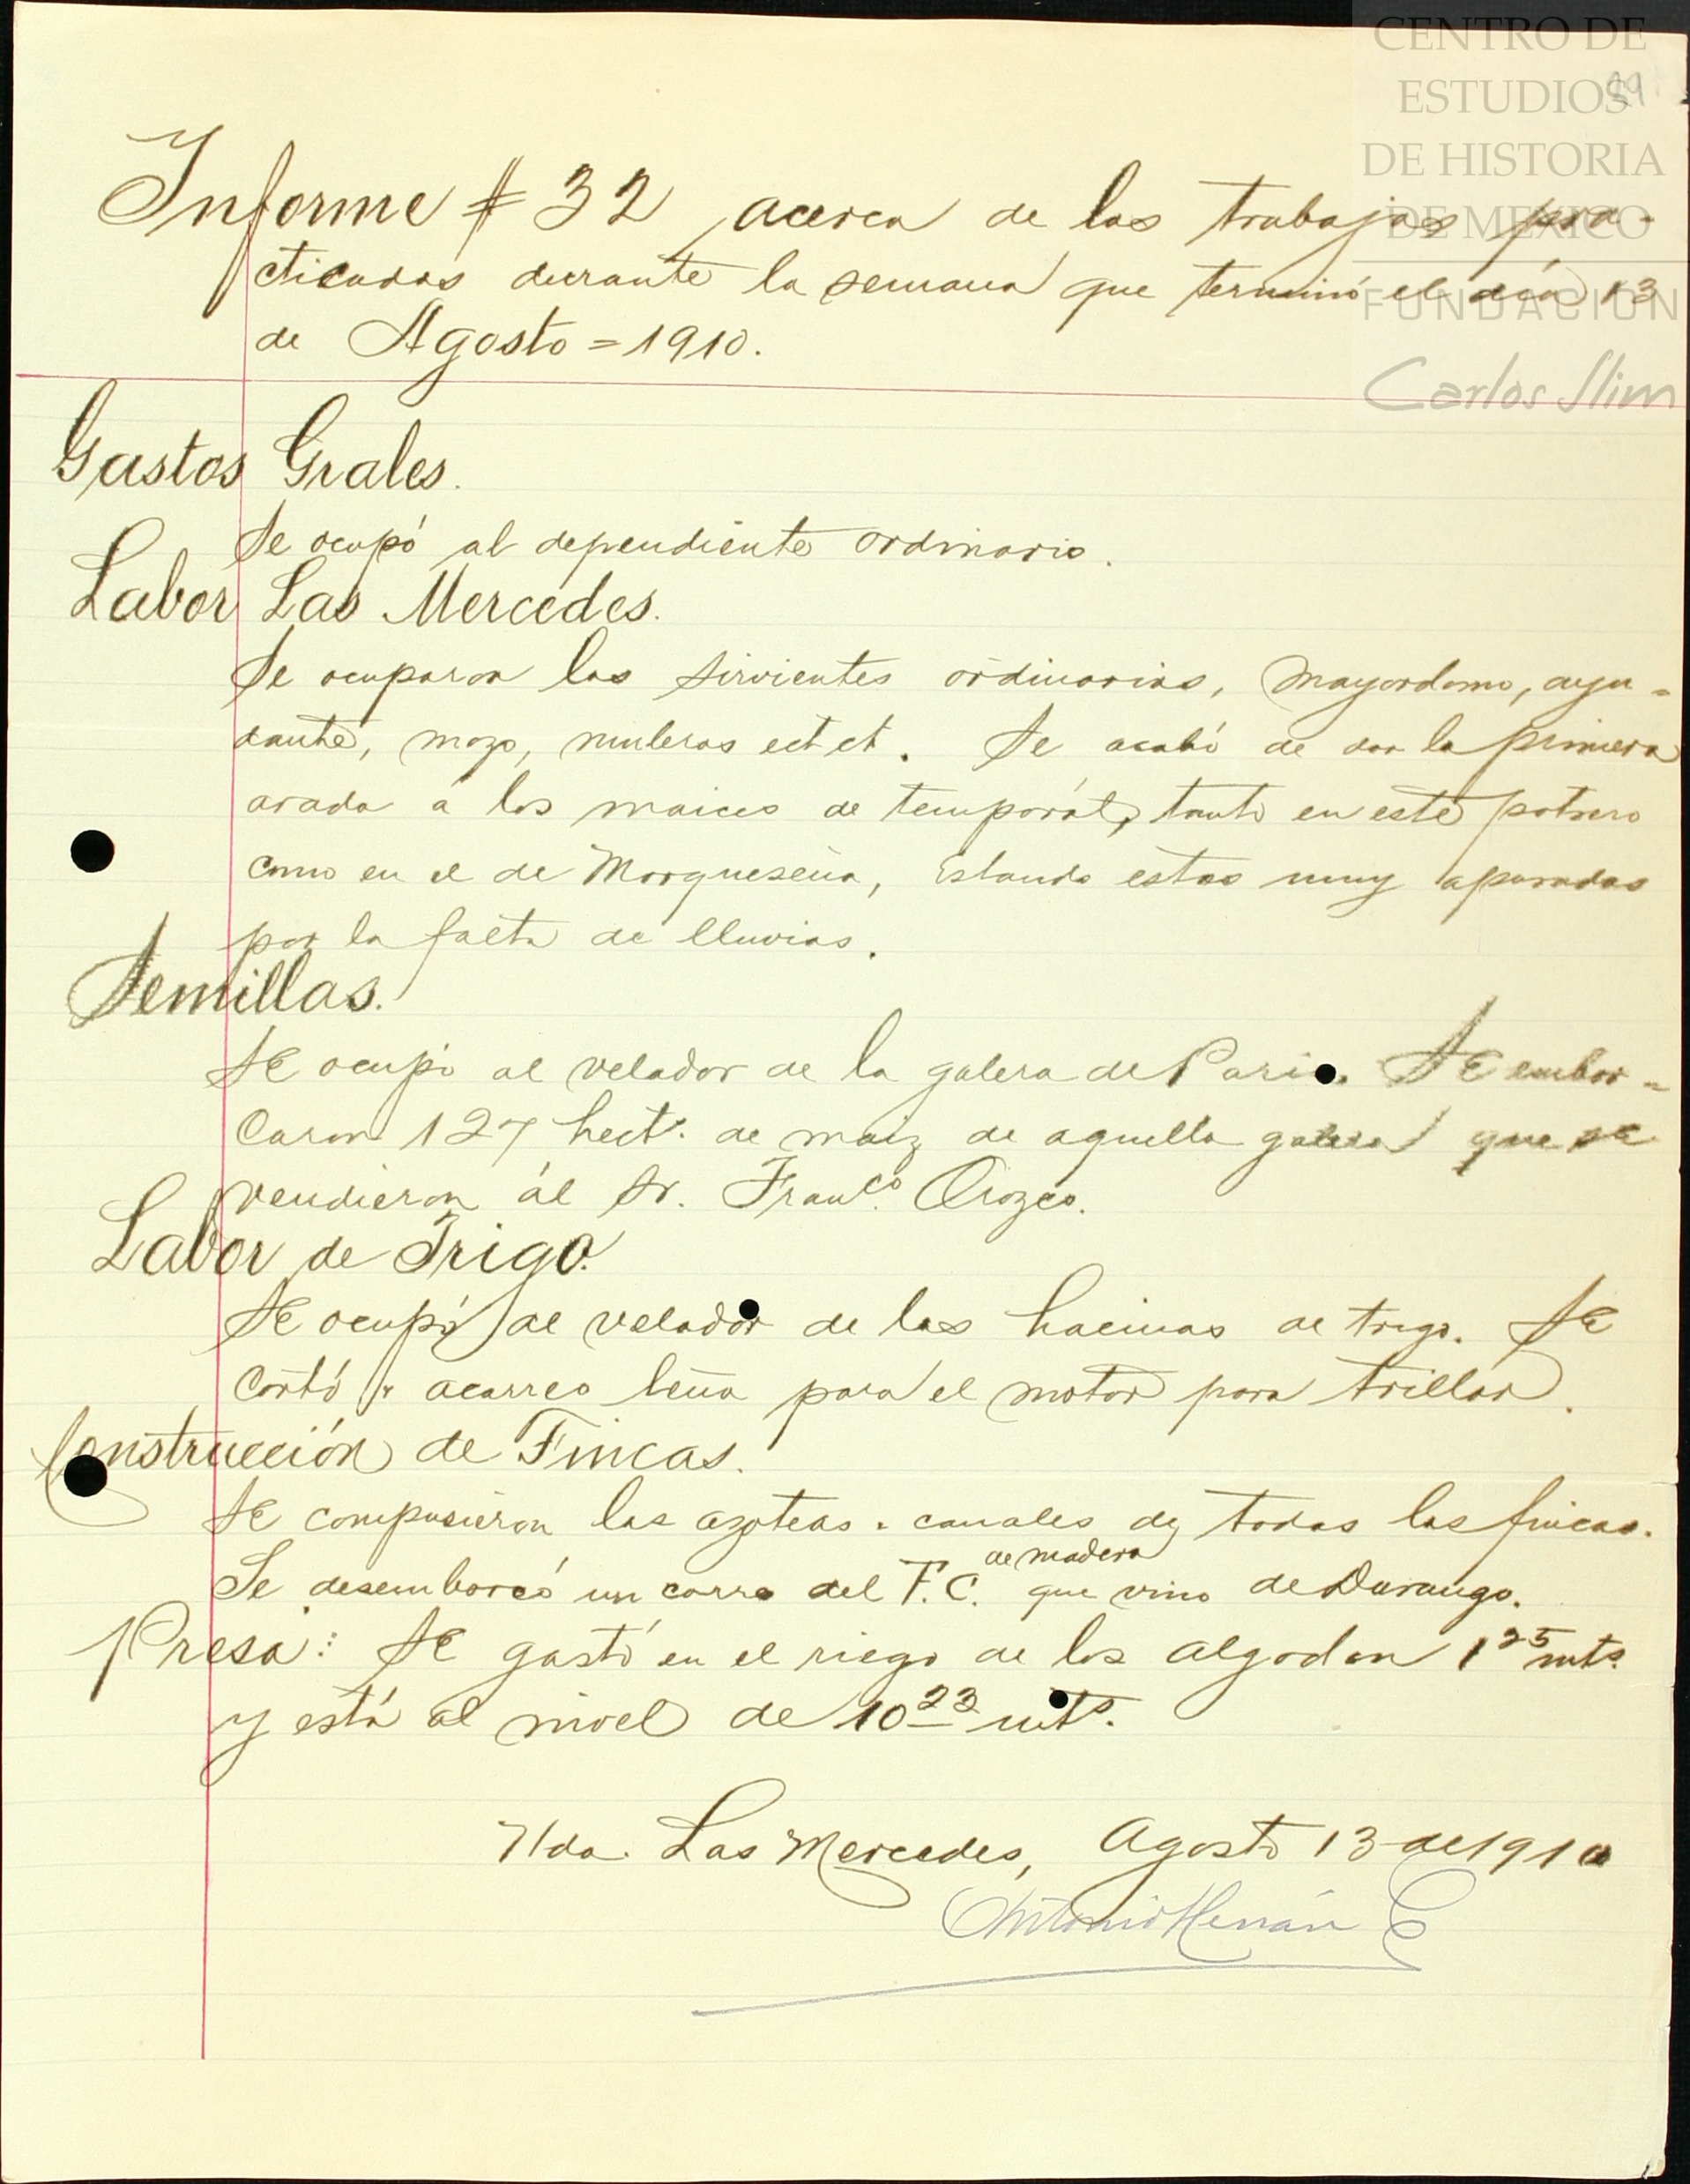 CENTRO DE
ESTUDIOS
DE HISTORIA
DE MEXICO
FUNDACION
Carlos Slim
Informe # 32 acerca de los trabajos pra-
cticados durante la semana que terminó el día 13
de Agosto = 1910.
Gastos Grales.
Se ocupó al dependiente ordinario.
Labor Las Mercedes.
Se ocuparon los sirvientes ordinarios, mayordomo, ayu-
dante, mozo, muleros ect ct. Se acabó de dar la primera
arada á los maices de temporal, tanto en este potrero
como en el de Marqueseña, estando estos muy apurados
por la falta de lluvias.
Semillas.
Se ocupó al velador de la galera de Se embar-
caron 127 hect. de maiz de aquella galera que se
vendieron ál Sr. Franco. Orozco.
Labor de Trigo.
Se ocupó al velador de las hacinas de trigo. Se
cortó y acarreo leña para el motor para trillar.
Construcción de Fincas.
Se compusieron las azoteas canales de todas las fincas.
Se desembarcó un carro del F.C. de madera que vino de Durango.
Presa: Se gastó en el riego de los algodon 1 25 mts.
y está al nivel de 10 23 mts.
Hda. Las Mercedes, Agosto 13 de 1910
Antonio Hernán E